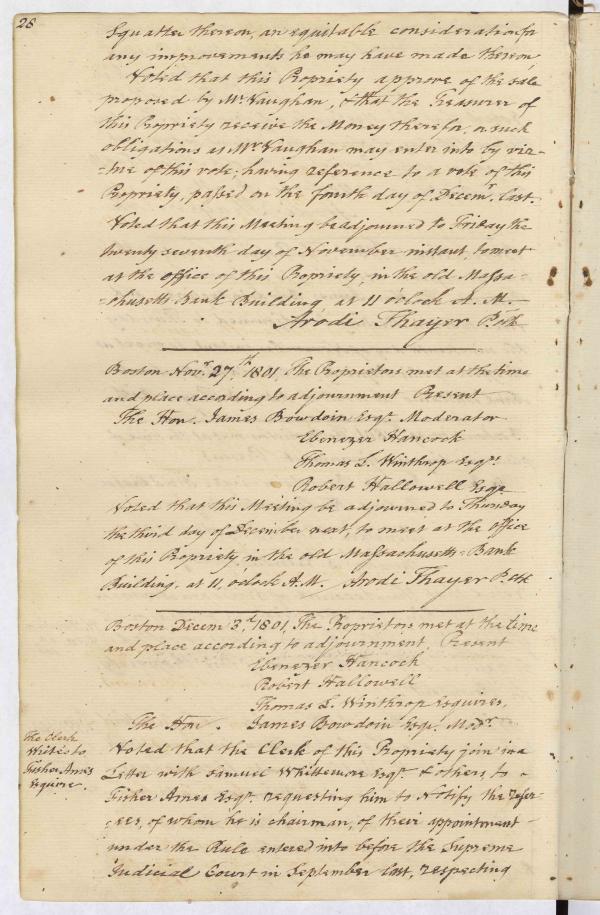 28
Squatter thereon, an equitable consideration for
any improvements he may have made thereon,
Voted that this Propriety approve of the sale
proposed by Mr. Vaughan, & that the Treasurer of
this Propriety receive the Money therefor, or such
obligations as Mr. Vaughan may enter into by vir-
-tue of this vote; having reference to a vote of this
Propriety, passed on the fourth day of Decemr. last.
Voted that this Meeting be adjourned to Friday the
twenty seventh day of November instant, to meet
at the office of this Propriety, in the old Massa-
-chusetts Bank Building at 11 o'clock A. M.
Arodi Thayer P. Clk
Boston Novr. 27th. 1801, The Proprietors met at the time
and place according to adjournment Present
The Hon. James Bowdoin Esqr. Moderator
Ebenezer Hancock
Thomas L. Winthrop Esqrs.
Robert Hallowell Esqr.
Voted that this Meeting be adjourned to Thursday
the third day of December next, to meet at the office
of this Propriety in the old Massachusetts-Bank
Building, at 11, o'clock A.M. Arodi Thayer P. Clk
Boston Decem 3d. 1801, The Proprietors met at the time
and place according to adjournment, Present
Ebenezer Hancock
Robert Hallowell
Thomas L. Winthrop Esquires,
The Hon. James Bowdoin Esqr. Modr.
the Clerk
Writes to
Fisher Ames
Esquire.
Voted that the Clerk of this Propriety join in a
Letter with Samuel Whittemore Esqr. & others, to
Fisher Ames Esqr. requesting him to Notify the refer-
-ees, of whom he is chairman, of their appointment
under the Rule entered into before the Supreme
Judicial Court in September last, respecting